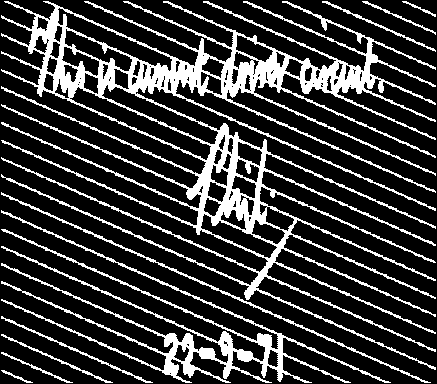 This is current driver circuit.
22-9-71